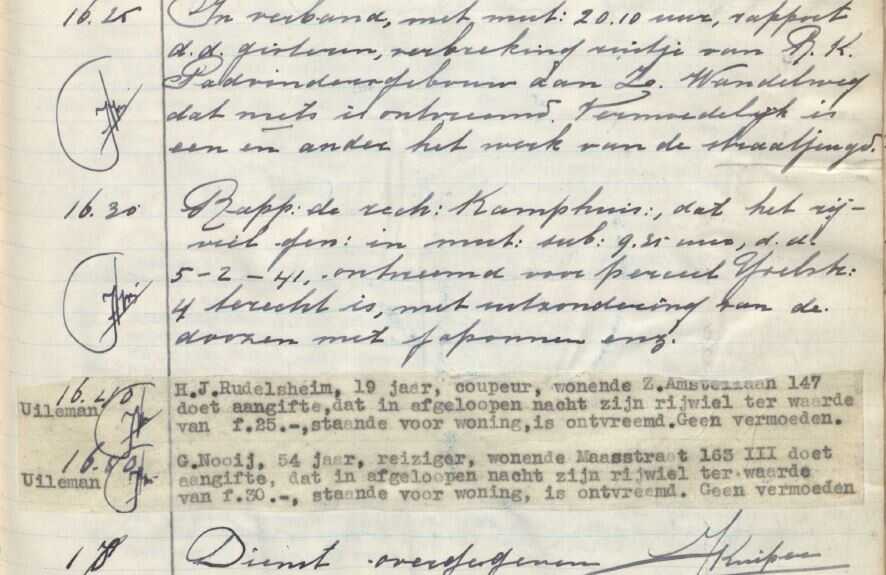 16.25 In verband, met mut: 20.10 uur, rapport
d.d. gisteren, verbreking ruitje van R.K.
Padvindersgebouw aan Zo. Wandelweg
dat niets is ontvreemd. Vermoedelijk is
een en ander het werk van de straatjeugd.
16.30 Rapp: de rech: Kamphuis:, dat het rij-
wiel gen: in mut: sub: 9.35 uur, d.d.
5-2-41, ontvreemd voor perceel
4 terecht is, met uitzondering van de
doozen met japonnen enz.
16.40 H.J.Rudelsheim, 19 jaar, coupeur, wonende Z.Amstellaan 147
Uileman doet aangifte,dat in afgeloopen nacht zijn rijwiel ter waarde
van f.25.-,staande voor woning,is ontvreemd.Geen vermoeden.
16.50 G.Nooij, 54 jaar, reiziger, wonende Maasstraat 163 III doet
Uileman aangifte, dat in afgeloopen nacht zijn rijwiel ter waarde
van f.30.-, staande voor woning, is ontvreemd. Geen vermoeden
Dienst overgegeven Kuiper